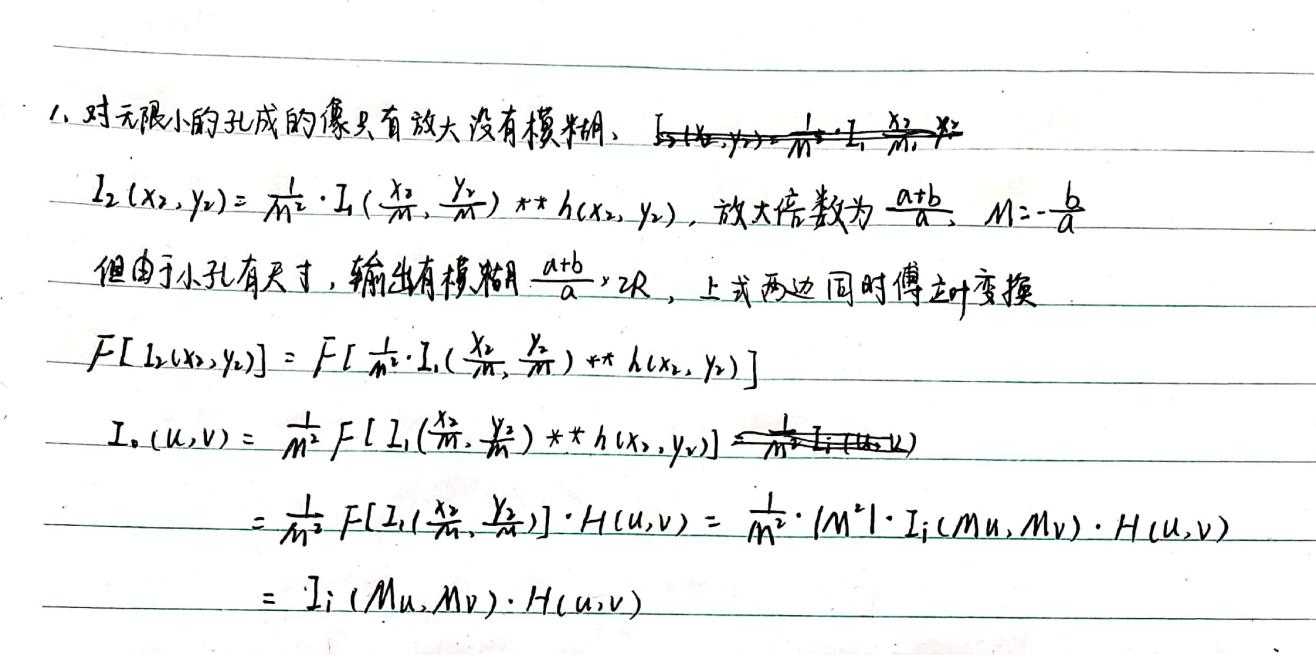 1、对无限小的孔成的像只有放大没有模糊、
I₂(x₂,y₂)= 1/M² · I₁(x₂/M, y₂/M) ** h(x₂, y₂), 放大倍数为 (a+b)/a、 M=-b/a
但由于小孔有尺寸,输出有模糊 (a+b)/a × 2R, 上式两边同时傅立叶变换
F[I₂(x₂,y₂)] = F[1/M² · I₁(x₂/M, y₂/M) ** h(x₂, y₂)]
I₀(u,v) = 1/M² F[I₁(x₂/M, y₂/M) ** h(x₂,y₂)]
= 1/M² F[I₁(x₂/M, y₂/M)] · H(u,v) = 1/M² · |M²| · Iᵢ(Mu, Mv) · H(u,v)
= Iᵢ(Mu, Mv) · H(u,v)